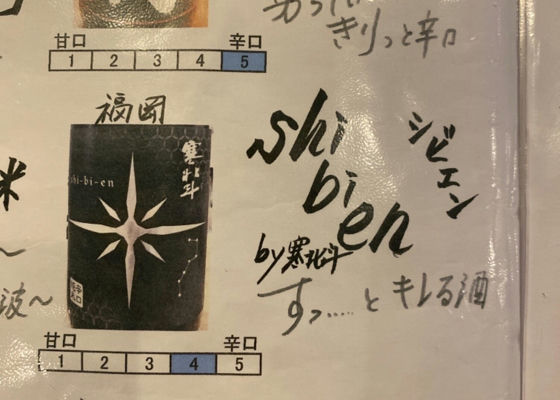 きりっと辛口
甘口 辛口
1 2 3 4 5
福岡
寒北斗
shi-bi-en
辛口
shi
bi
en
シビエン
by寒北斗
すっ……とキレる酒
米
波~
甘口 辛口
1 2 3 4 5